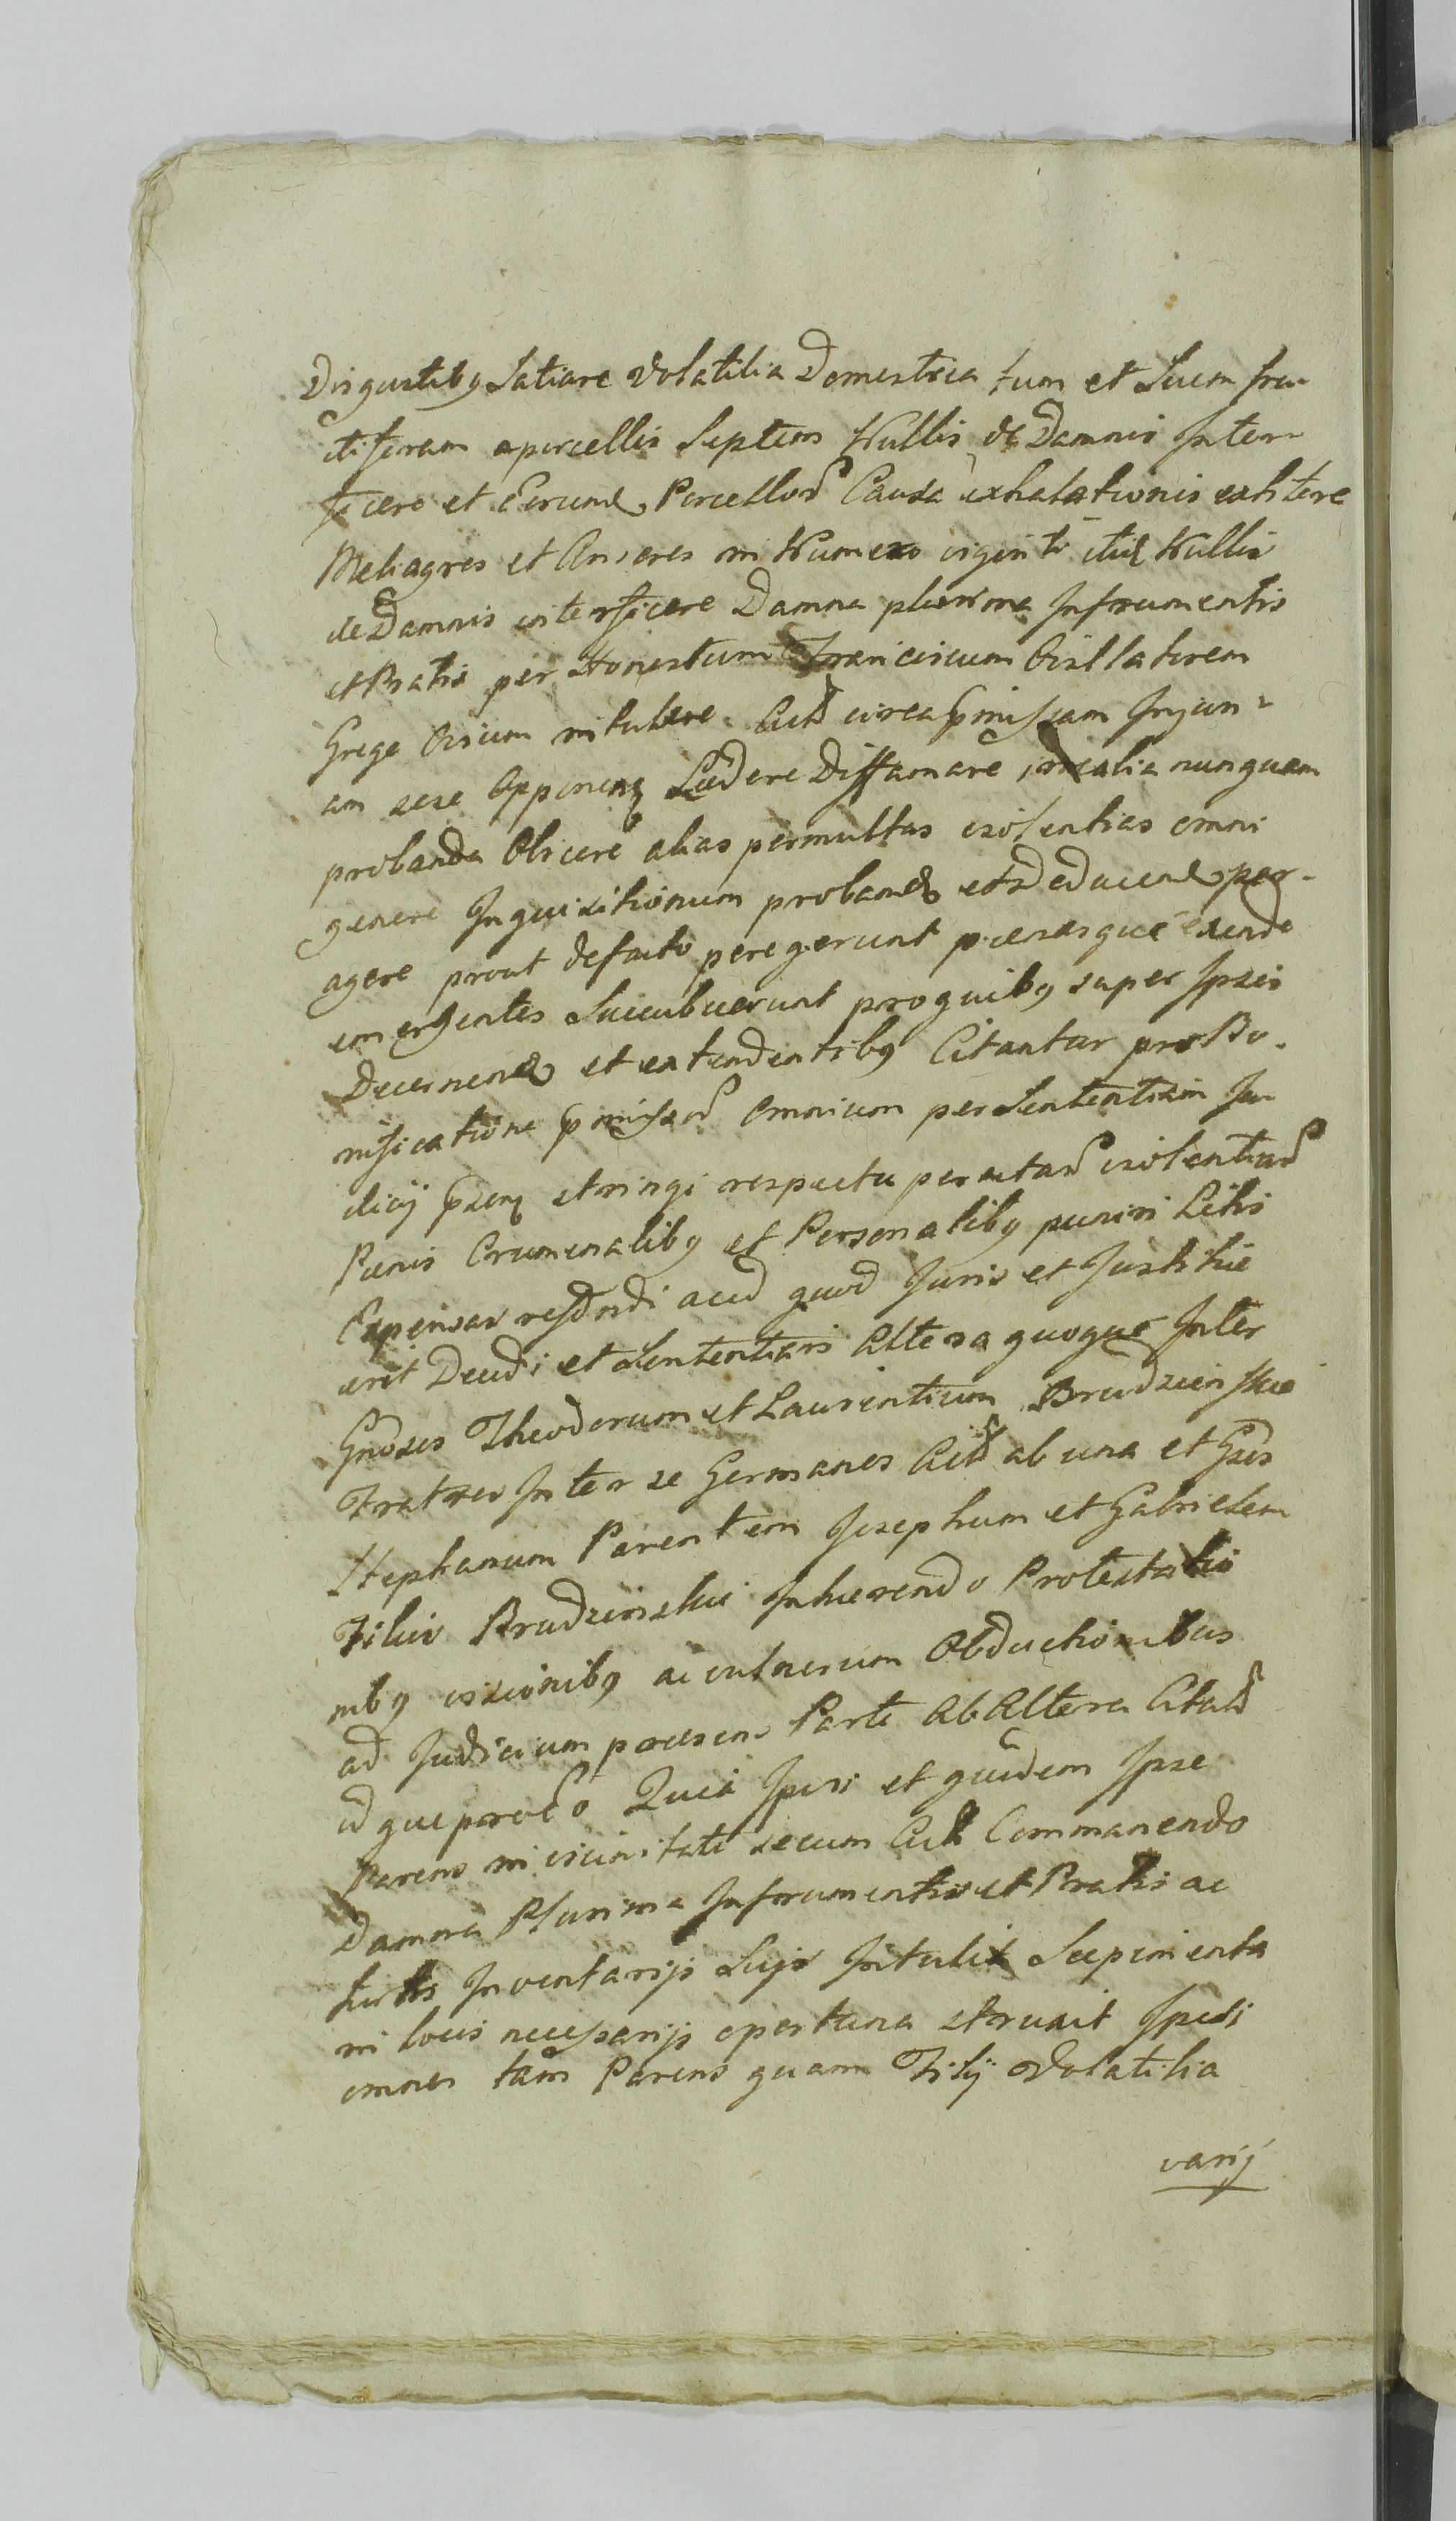 Disgustibq Satiare Volatilia Domestica tum et Suem fru-
ctiferam a porcellis Septem Nullis de Damnis Inter-
ficere et Eorund Porcellor Causa exhalationis extitere
Meliagres et Anseres in Numero viginti itid Nullis
de Damnis interficere Damna plurima Infrumentis
et Pratis per Honestum Franciscum Opillatorem
Grege Ovium intulere Actor circa pmissam Injuri-
am sese Opponen Lædere Diffamare, inealia nunquam
probanda Obiicere alias permultas violentias omni
genere Inquisitionum proband et deducend per-
agere prout defacto peregerunt pænasque exinde
emergentes Succubuerunt proquibq super Ipsis
Decernend et extendentibq Citantur pro Bo-
nificatione pmissor Omnium per Sententiam Ju-
dicij psen stringi respectu peractar violentiar
Pænis Criminalibq et Personalibq puniri Litis
Expensas refundi acid quod Juris et Justitiæ
erit Decidi et Sententiari Altera quoque Inter
Gnosos Theodorum et Laurentium Brudzinskie
Fratres Inter se Germanos Actor ab una et Gsos
Stephanum Parentem Josephum et Gabrielem
Filios Brudzinskie Inhærendo Protestatio
nibq visionibq ac vulnerum Obductionibus
ad Judicium præsens Parte Ab Altera Citator
idque pro eo Quia Ipsi et quidem Ipse
Parens in vicinitate secum Act Commanendo
Damna Plurima Infrumentis et Pratis ac
hortis Inventarijs Suijs Intulit Sepimenta
in locis necessarijs opportuna struxit Ipsi
omnes tam Parens quam Filij Volatilia
varij